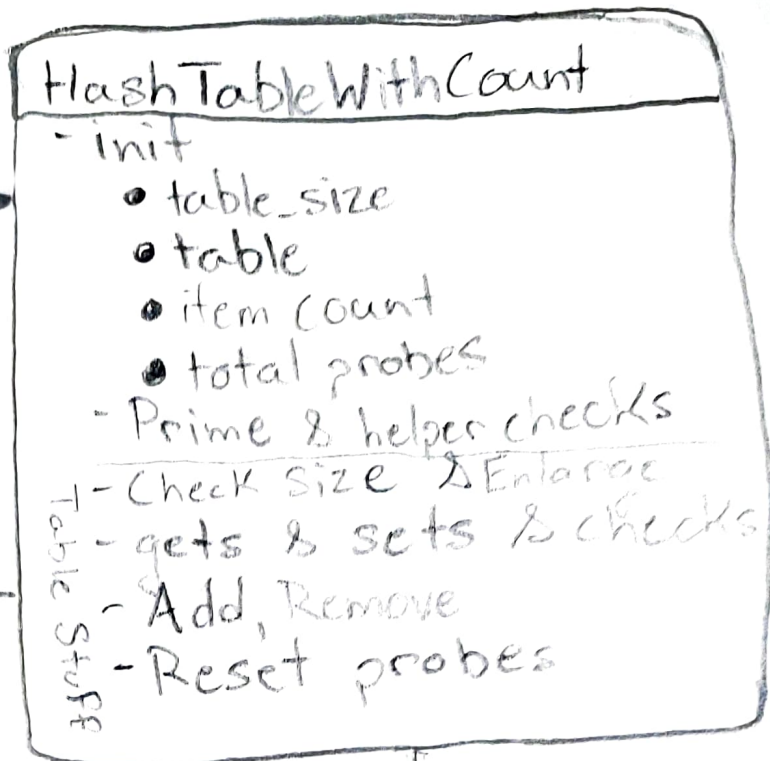 HashTableWithCount
- init
• table_size
• table
• item count
• total probes
- Prime & helper checks
- Check Size & Enlarge
- gets & sets & checks
- Add, Remove
- Reset probes
Table Stuff